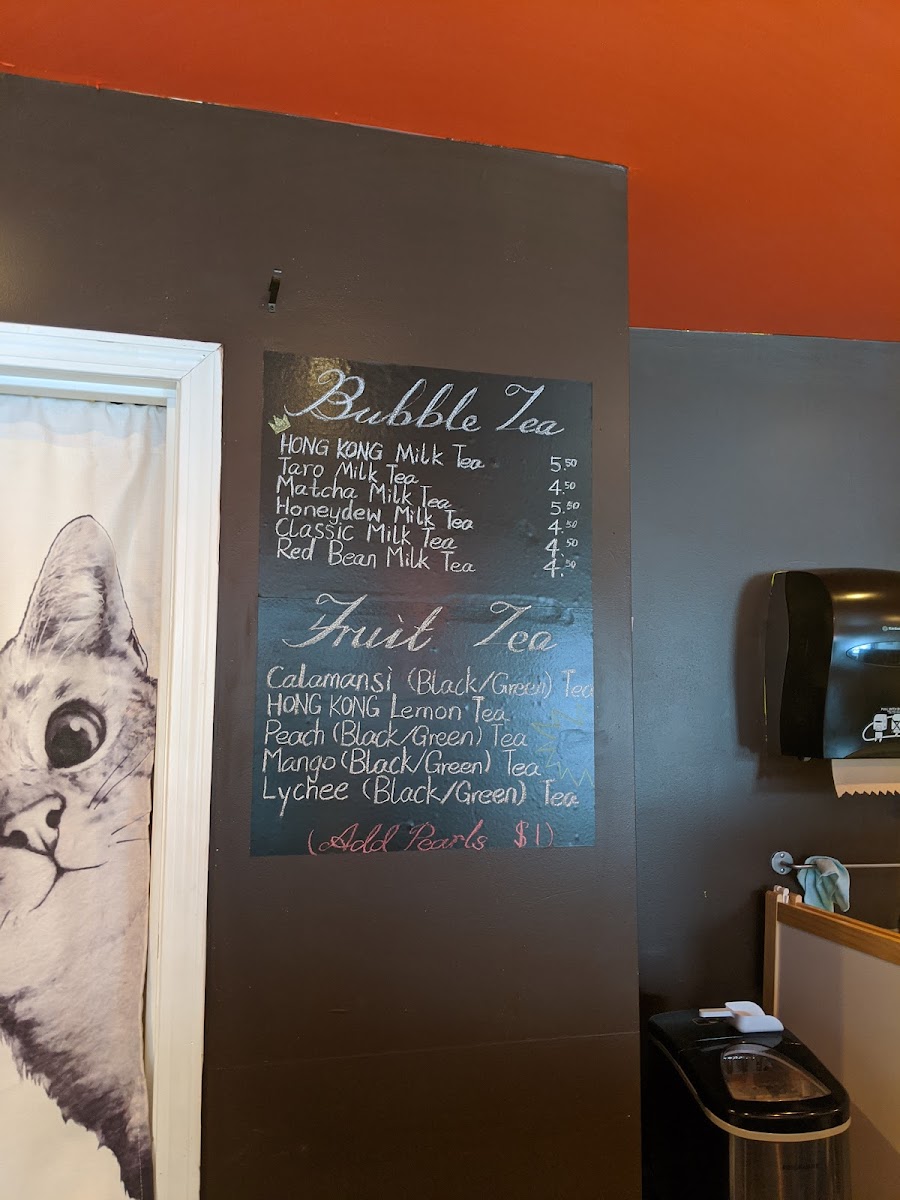 Bubble Tea
HONG KONG Milk Tea 5.50
Taro Milk Tea 4.50
Matcha Milk Tea 5.50
Honeydew Milk Tea 4.50
Classic Milk Tea 4.50
Red Bean Milk Tea 4.50
Fruit Tea
Calamansi (Black/Green) Tea
HONG KONG Lemon Tea
Peach (Black/Green) Tea
Mango (Black/Green) Tea
Lychee (Black/Green) Tea
(Add Pearls $1)